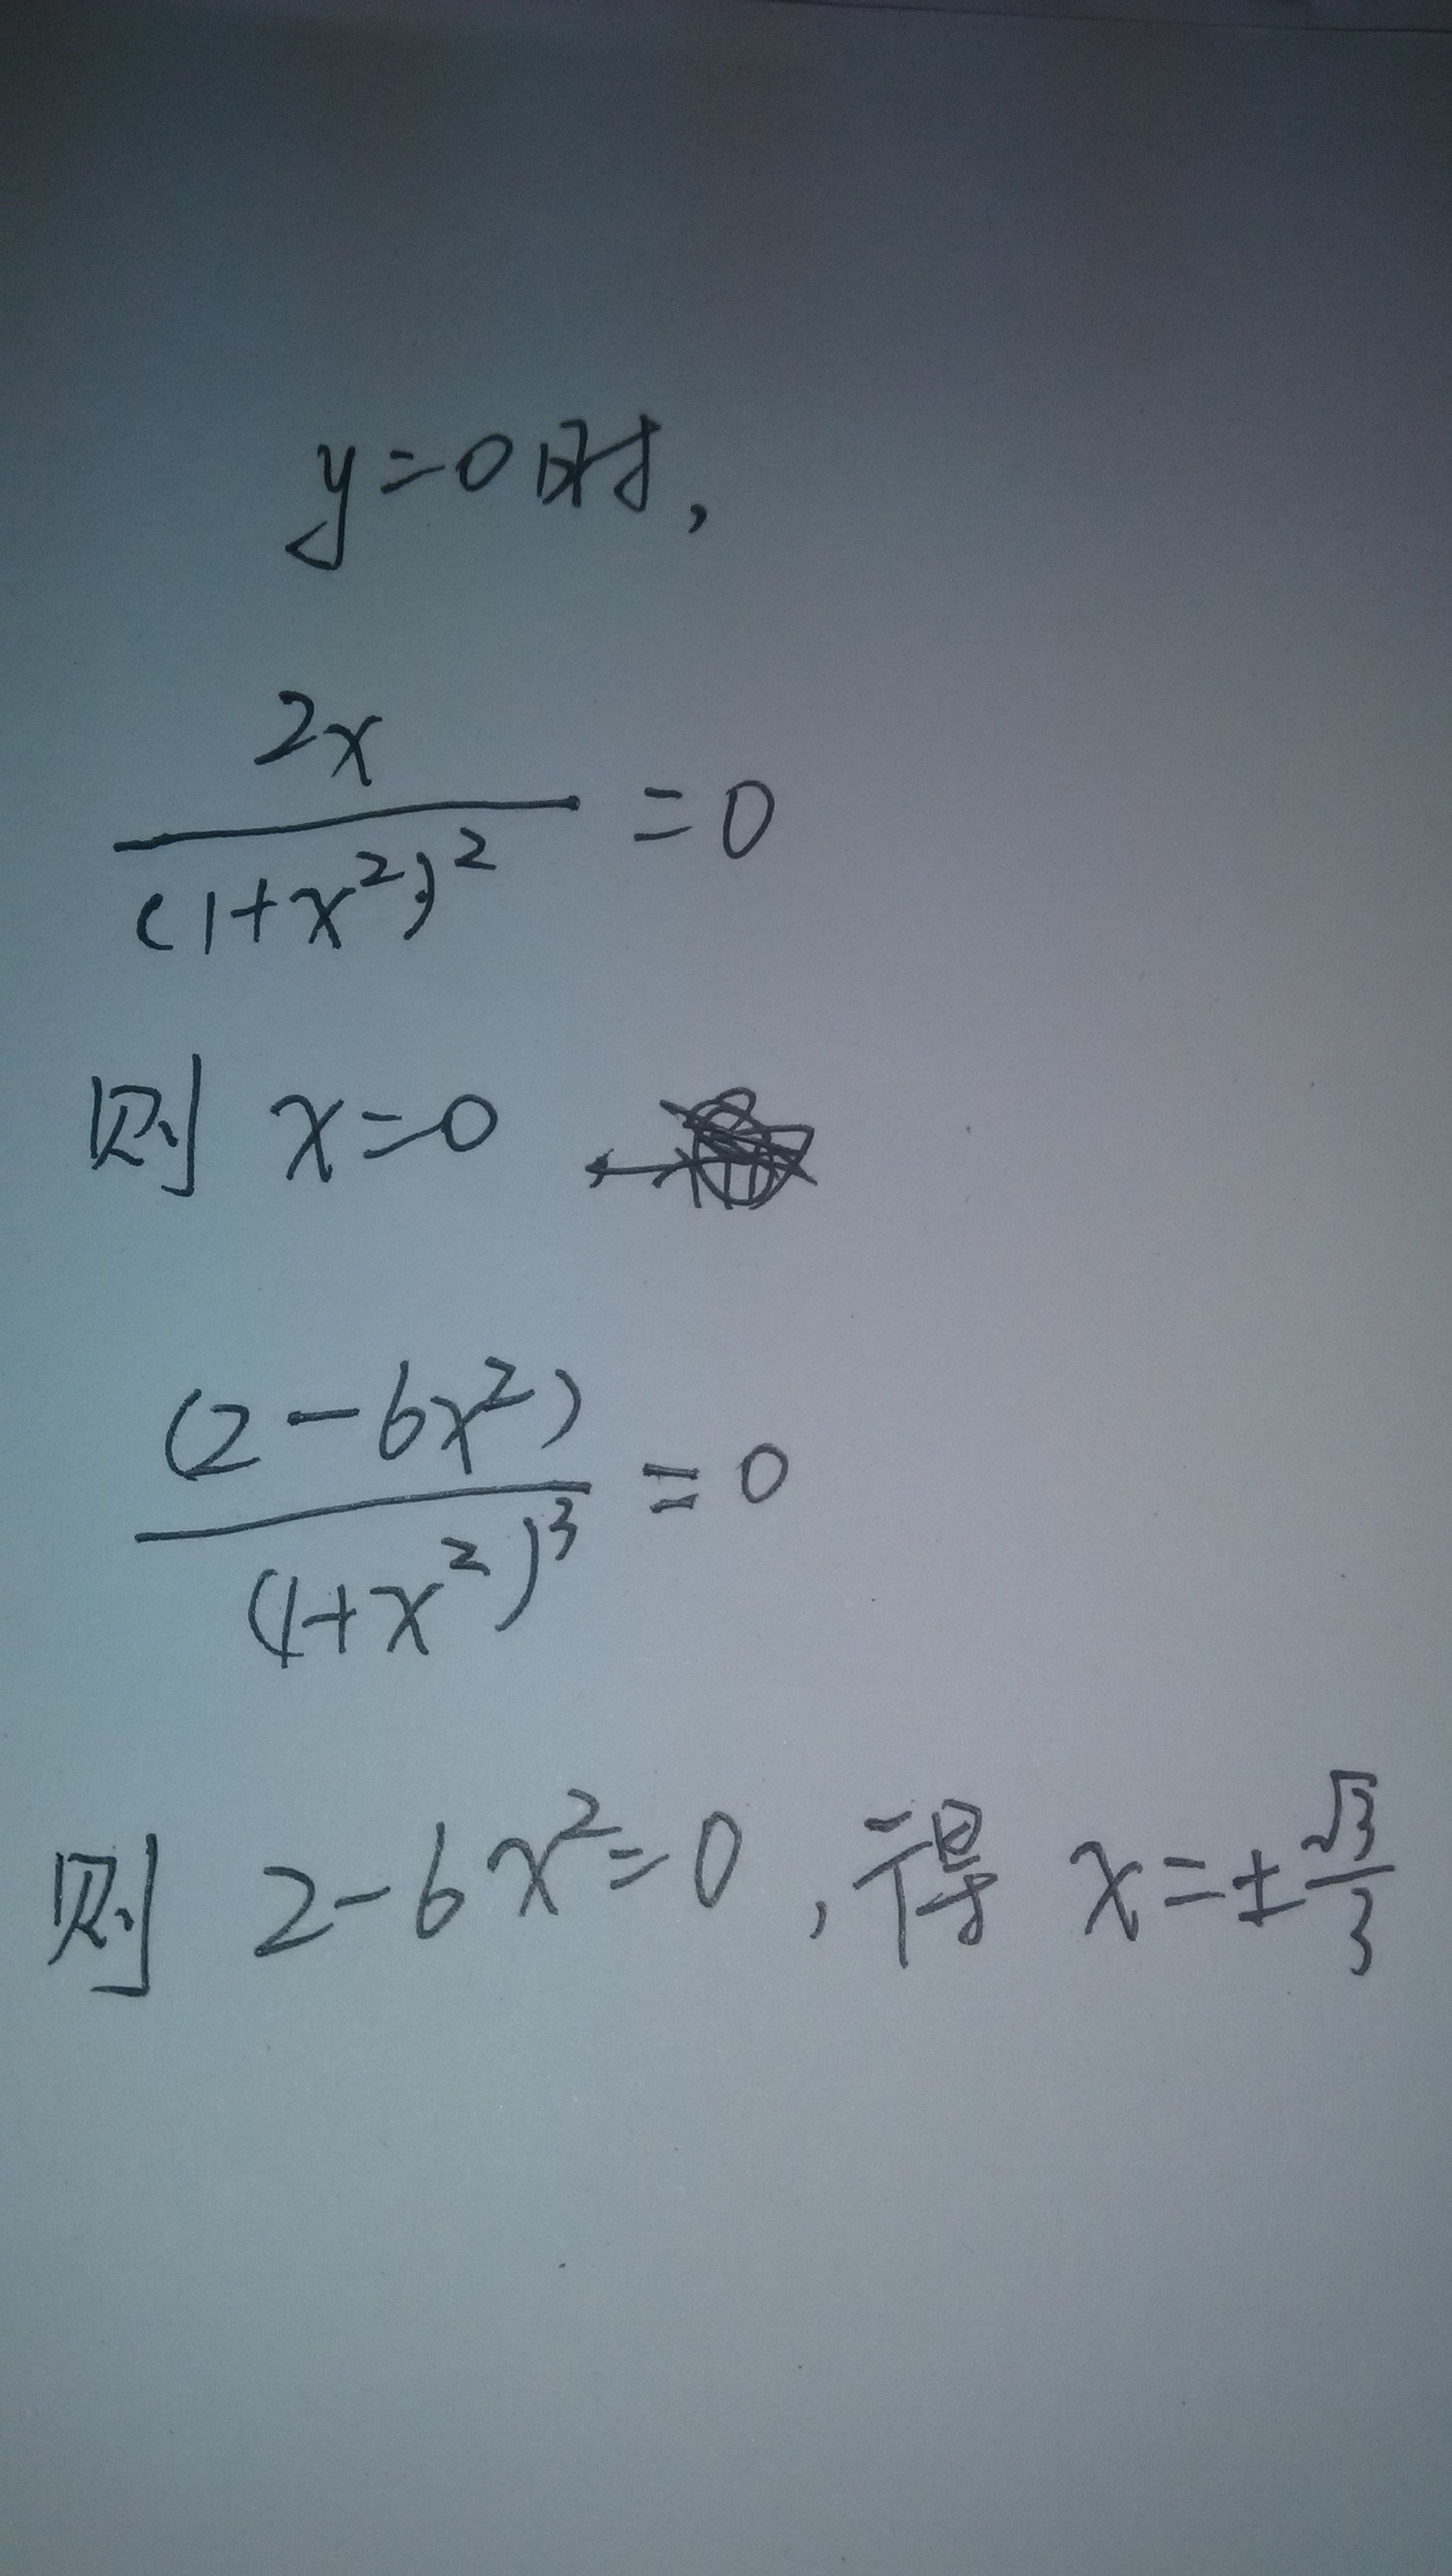 y=0时,
2x/(1+x²)² =0
则 x=0
(2-6x²)/(1+x²)³ =0
则 2-6x²=0,得 x=±√3/3